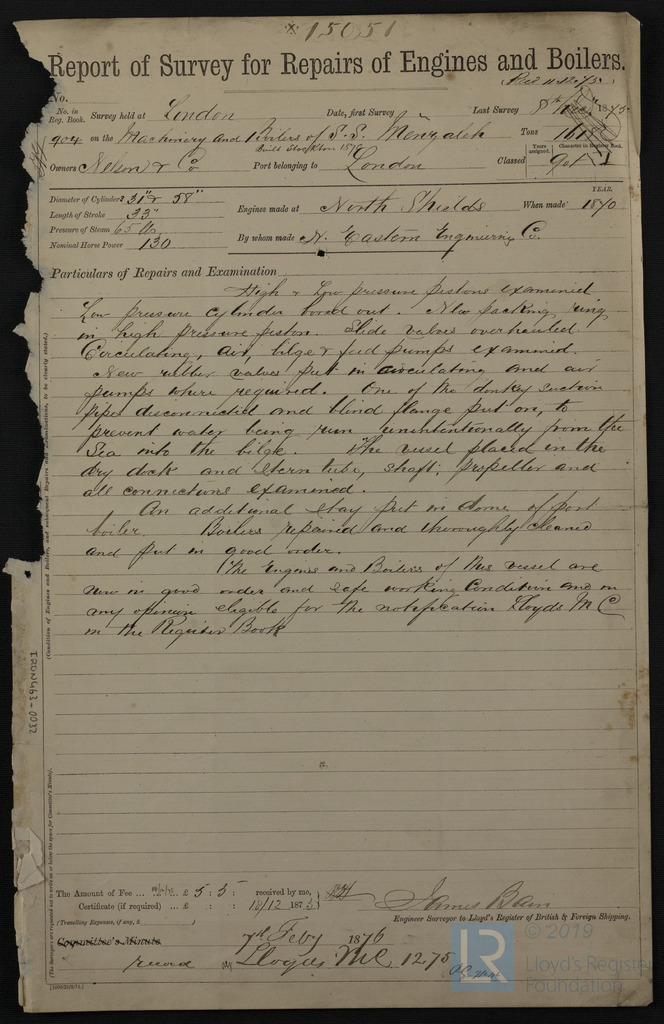 15051
Report of Survey for Repairs of Engines and Boilers.
Rec 11.12.75
No.
No. in Reg. Book. Survey held at London Date, first Survey " Last Survey 8th Dec 1875
904 on the Machinery and Boilers of S.S. Menzaleh Tons 1618
Built Stockton 1870
Years assigned. Character in Register Book.
Owners Nelson & Co Port belonging to London Classed 90A1
Diameter of Cylinders 31" & 58"
Length of Stroke 33"
Pressure of Steam 65 lbs
Nominal Horse Power 130
YEAR.
Engines made at North Shields When made 1870
By whom made N. Eastern Engineering Co.
Particulars of Repairs and Examination
High & Low pressure pistons examined
Low pressure cylinder bored out. New packing ring
in high pressure piston. Slide valves overhauled
Circulating, air, bilge & feed pumps examined.
New rubber valves put in circulating and air
pumps where required. One of the donkey suction
pipes disconnected and blind flange put on, to
prevent water being run unintentionally from the
Sea into the bilge. The vessel placed in the
dry dock and stern tube, shaft, propeller and
all connections examined.
An additional stay put in dome of port
boiler. Boilers repaired and thoroughly cleaned
and put in good order.
The Engines and Boilers of this vessel are
now in good order and safe working Condition and in
my opinion eligible for the notification Lloyds M C
in the Register Book
(Condition of Engines and Boilers, and subsequent Repairs and Examinations, to be clearly stated.)
IRON463-0032
(The Surveyors are requested not to write on or below the space for Committee's Minute).
The Amount of Fee ... £ 5 : 5 : received by me,
Certificate (if required) ... £ : : 18/12 1875
(Travelling Expenses, if any, £ )
James Bain
Engineer Surveyor to Lloyd's Register of British & Foreign Shipping.
Committee's Minute 7th Feby 1876
record Lloyds MC 12.75
© 2019
LR
Lloyd's Register
Foundation